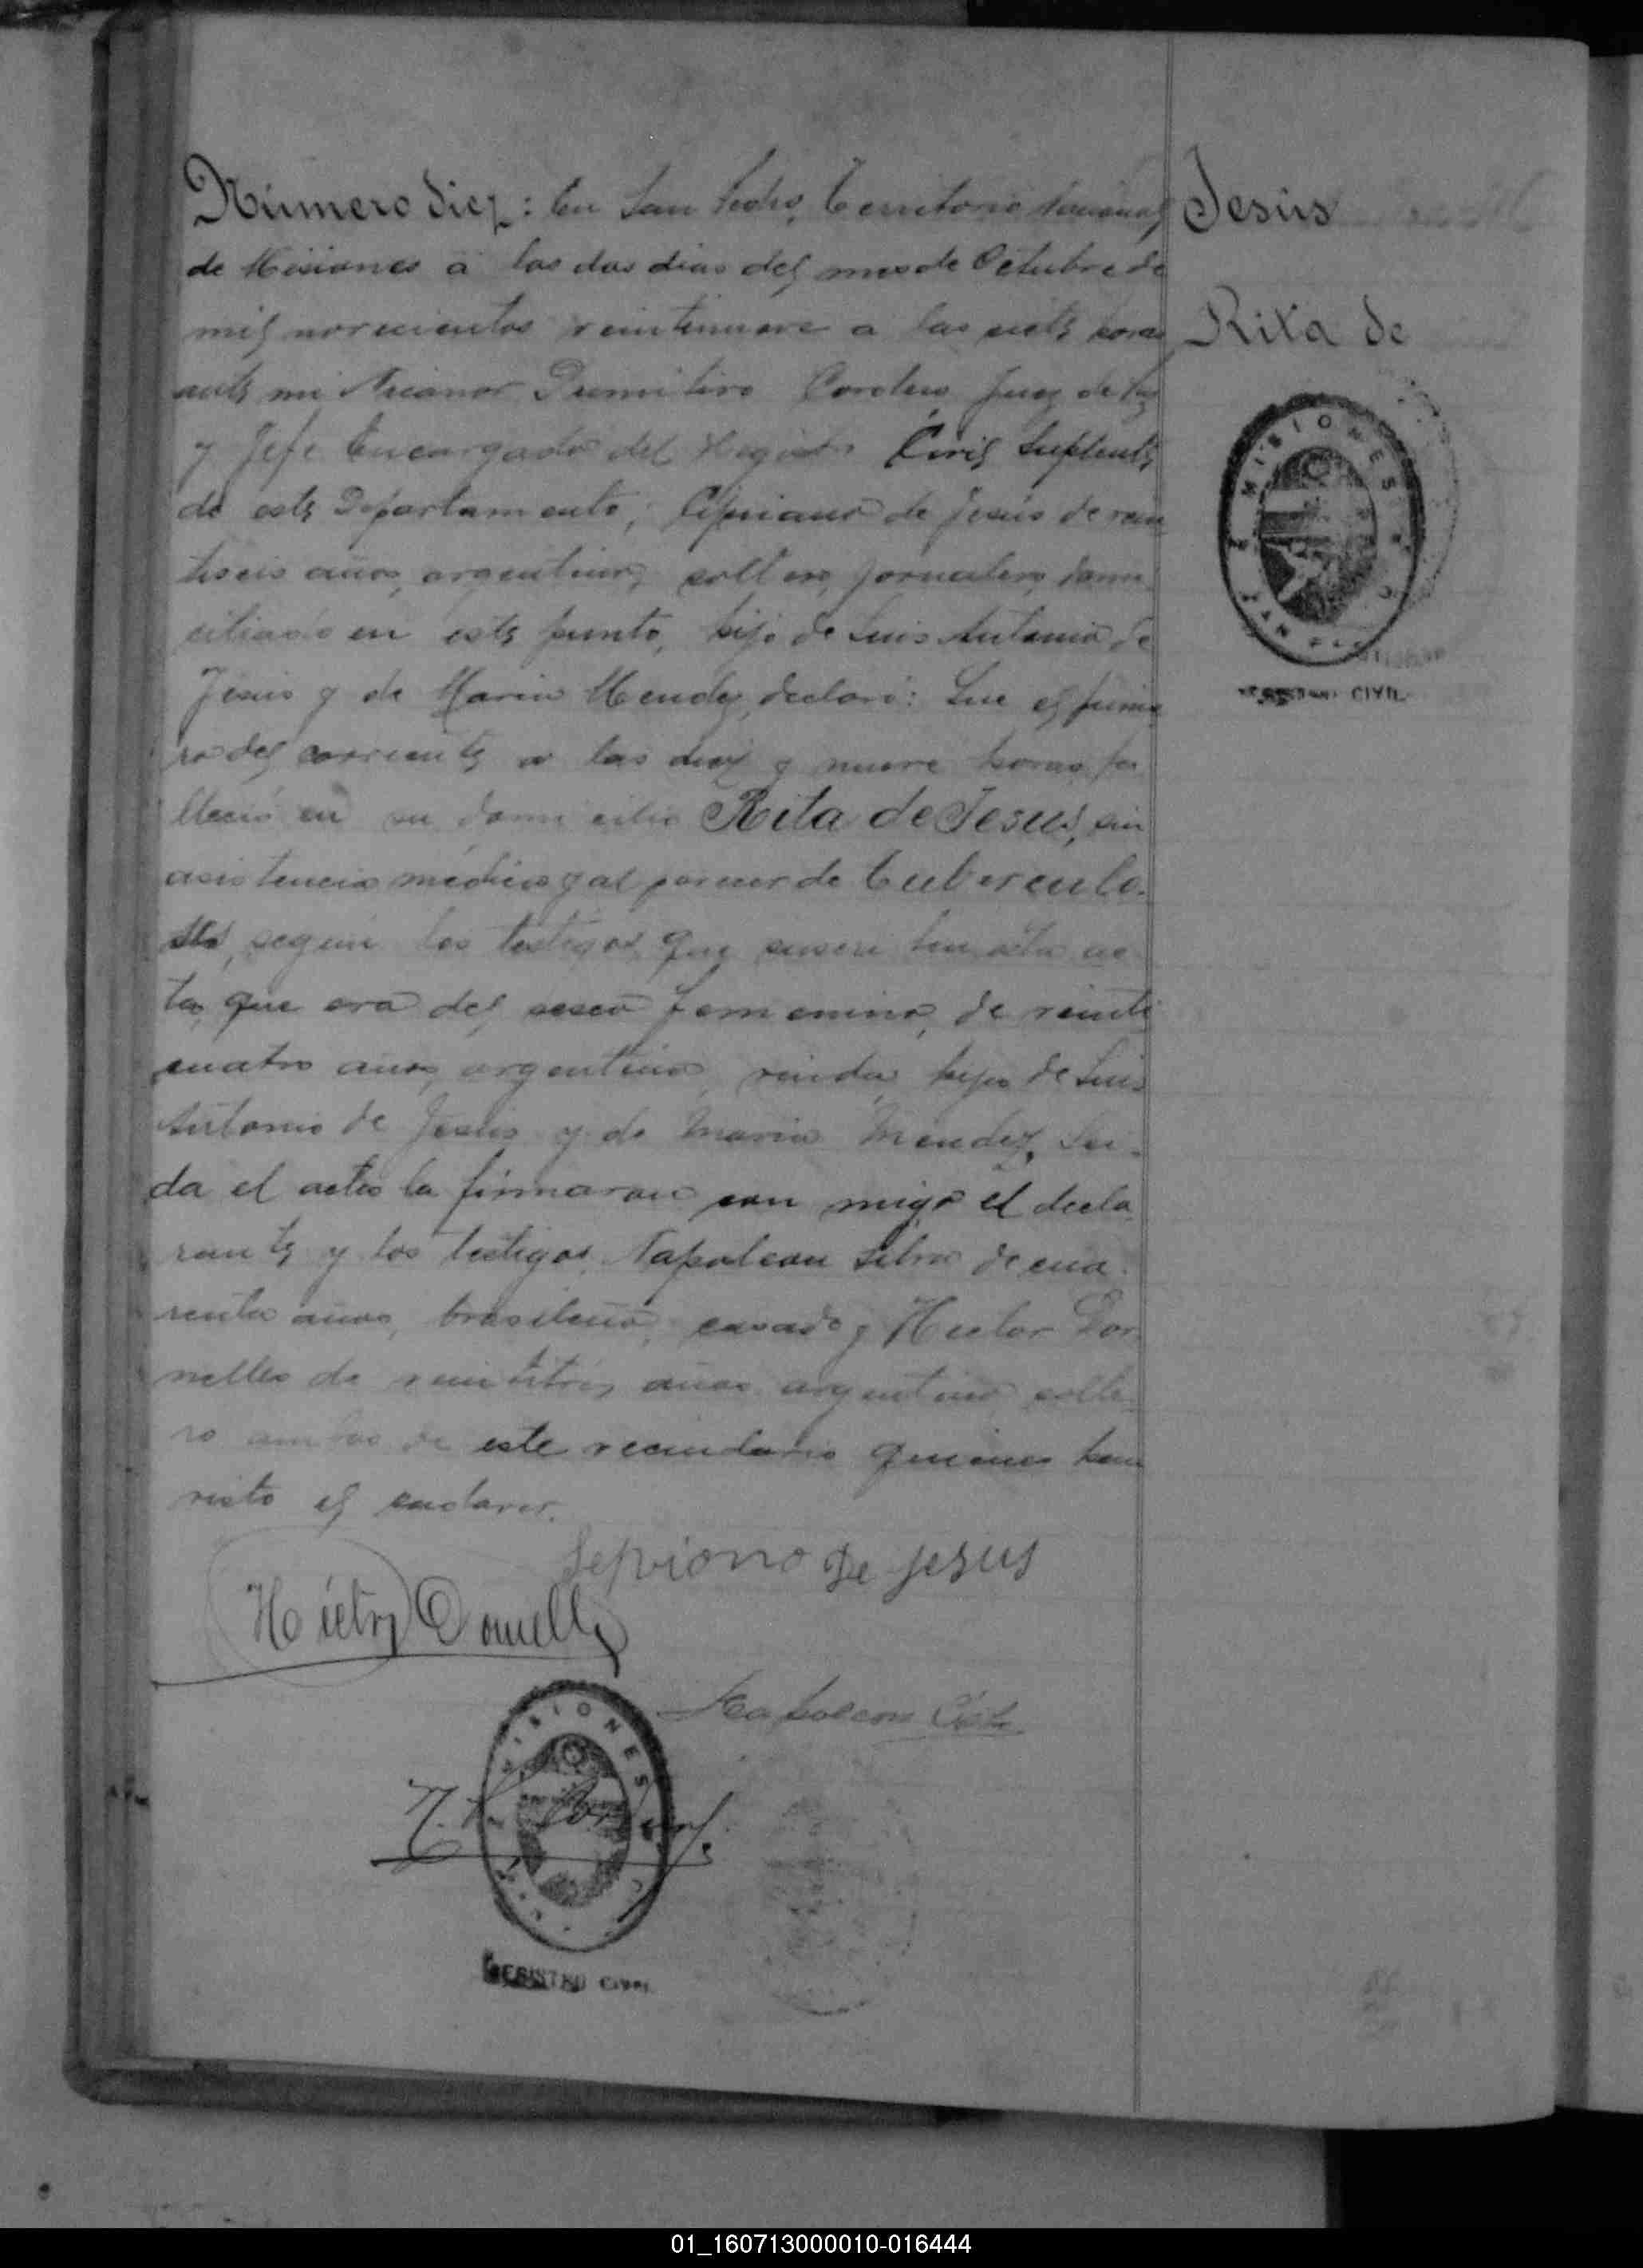 Número diez: En San Pedro, Territorio Nacional
Jesús
de Misiones a los dos dias del mes de Octubre de
mil novecientos veintinueve a las siete horas
Rita de
ante mi Nicanor Primitivo Cordero Juez de Paz
y Jefe Encargado del Registro Civil Suplente
de este Departamento, Cipriano de Jesús de vein
tiseis años, argentino, soltero, jornalero, domi
ciliado en este punto, hijo de Luis Antonio de
Jesús y de Maria Mendez, declaró: Que el prime
ro del corriente a las diez y nueve horas, fa
lleció en su domicilio Rita de Jesús, sin
asistencia médica y al parecer de tuberculo-
sis, según los testigos que suscriben esta ac
ta, que era del sexo femenino, de veinti
cuatro años, argentina, viuda, hija de Luis
Antonio de Jesús y de Maria Mendez. Lei-
da el acta la firmaron con migo el decla
rante y los testigos Napoleon Silva de cua
renta años, brasileño, casado y Hector Dor
nelles de veintitrés años argentino solte
ro ambos de este vecindario quienes han
visto el cadaver.
Sepriono de jesus
Héctor Dornelles
Napoleon Silva
N. P. Cordero
MISIONES
REGISTRO CIVIL
MISIONES
REGISTRO CIVIL
01_160713000010-016444